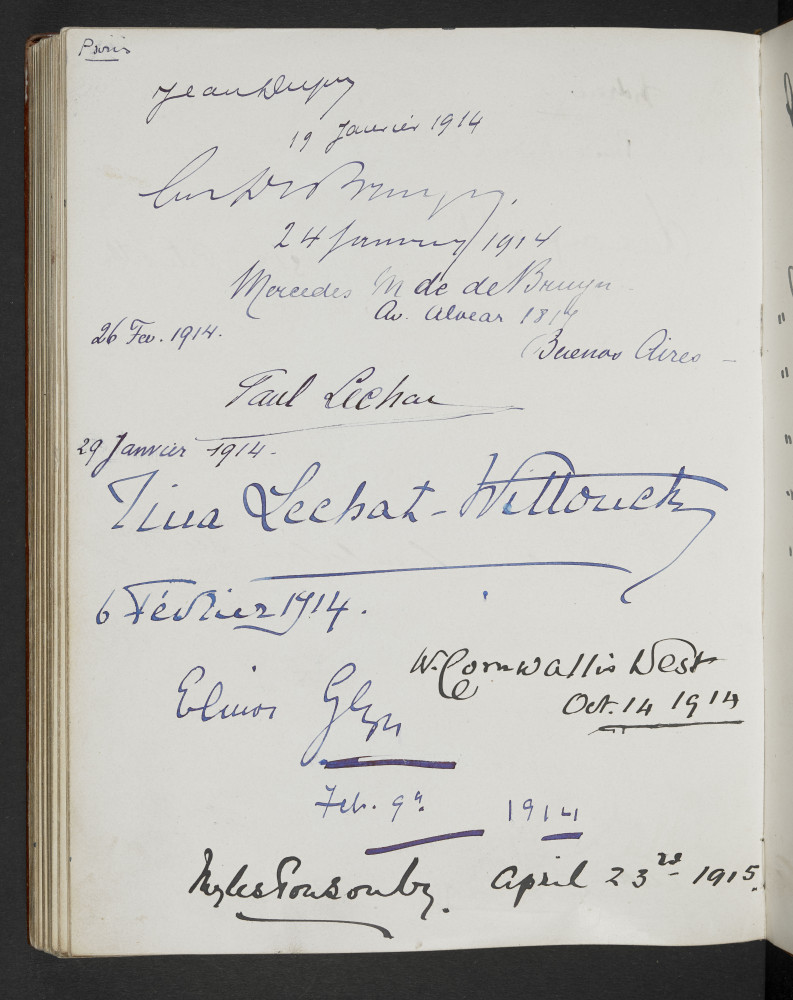 Paris
Jean Dupuy
19 Janvier 1914
De Bruyn
24 January 1914
Mercedes M de de Bruyn
Av. Alvear 1814
26 Fev. 1914.
Buenos Aires –
Paul Lechat
29 Janvier 1914.
Tina Lechat-Wittouck
6 Février 1914.
W. Cornwallis West
Oct. 14 1914
Elinor Glyn
Feb. 9th 1914
Myles Ponsonby. April 23rd 1915.